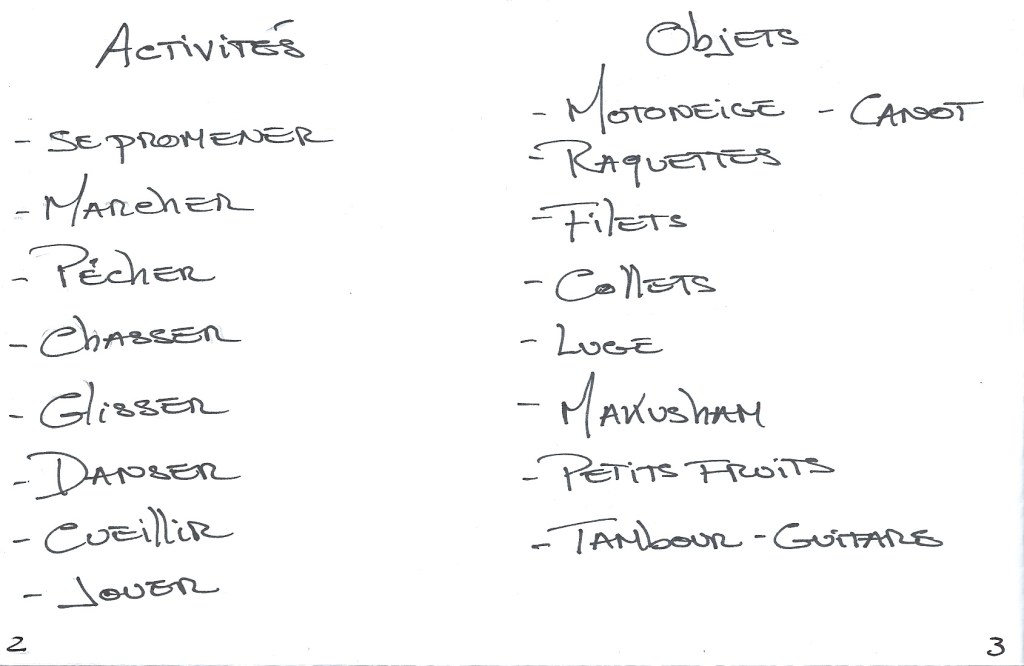 Activités
- Se promener
- Marcher
- Pêcher
- Chasser
- Glisser
- Danser
- Cueillir
- Jouer
2
Objets
- Motoneige - Canot
- Raquettes
- Filets
- Collets
- Luge
- Makusham
- Petits fruits
- Tambour - Guitare
3